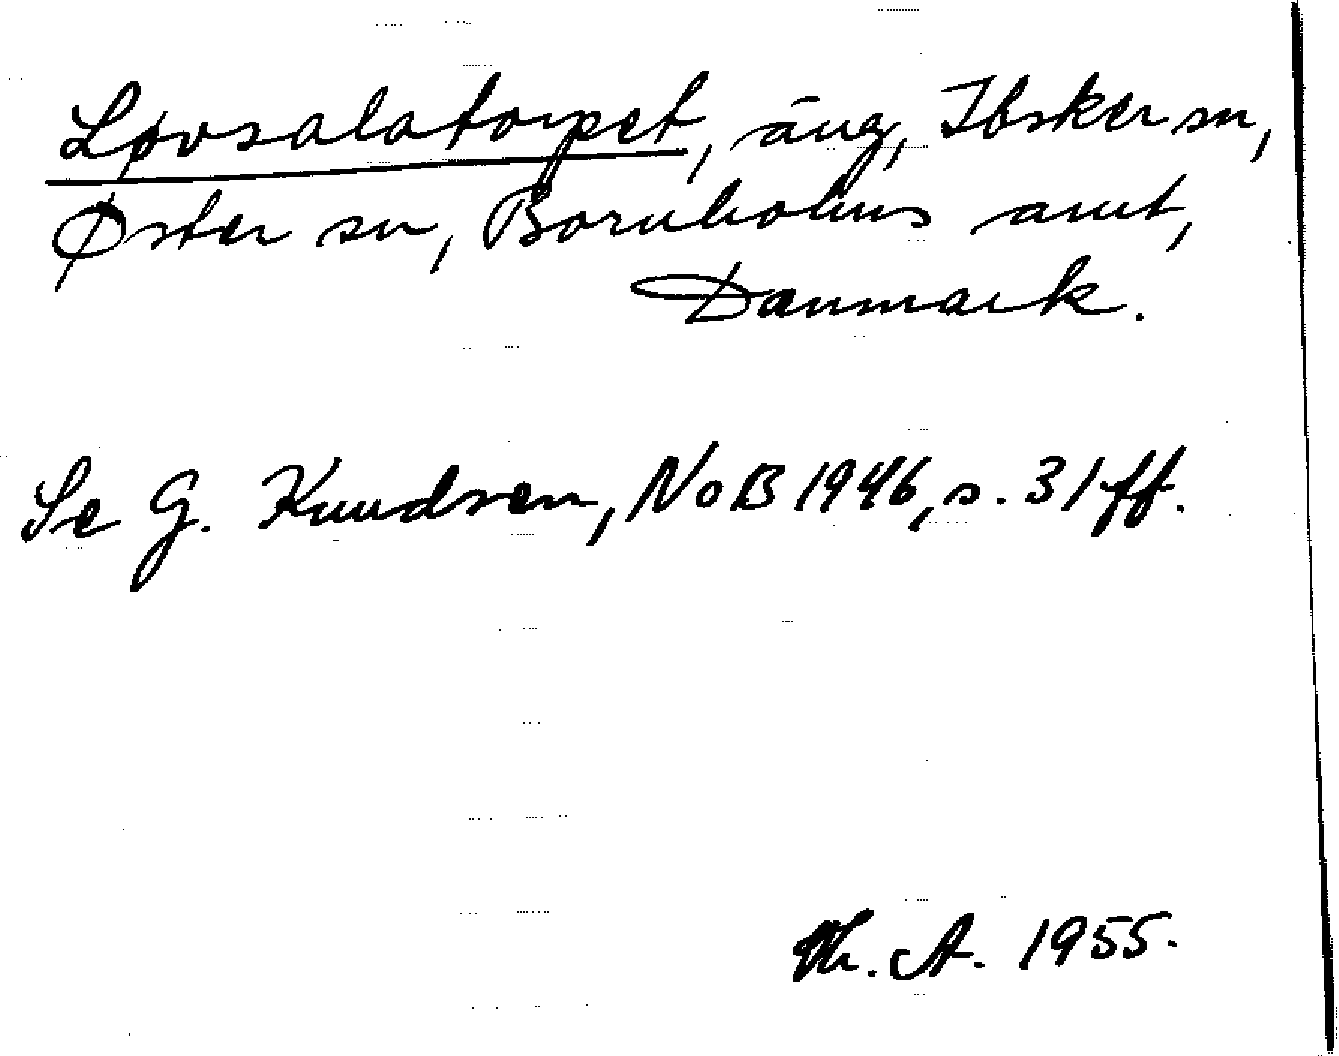 Løvsalatorpet, äng, Ibsker sn,
Øster sn, Bornholms amt,
Danmark.
Se G. Knudsen, NoB 1946, s. 31 ff.
Th. A. 1955.